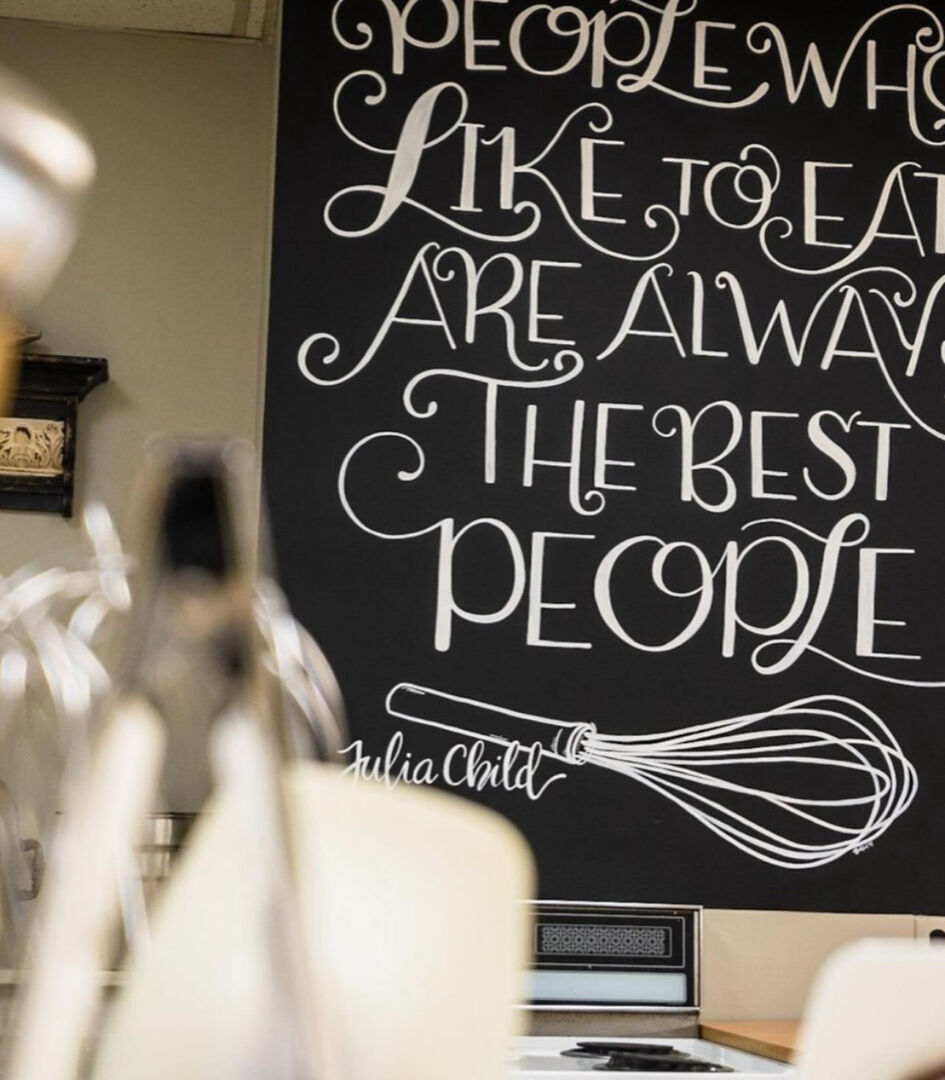 PEOPLE WHO
LIKE TO EAT
ARE ALWAY
THE BEST
PEOPLE
Julia Child